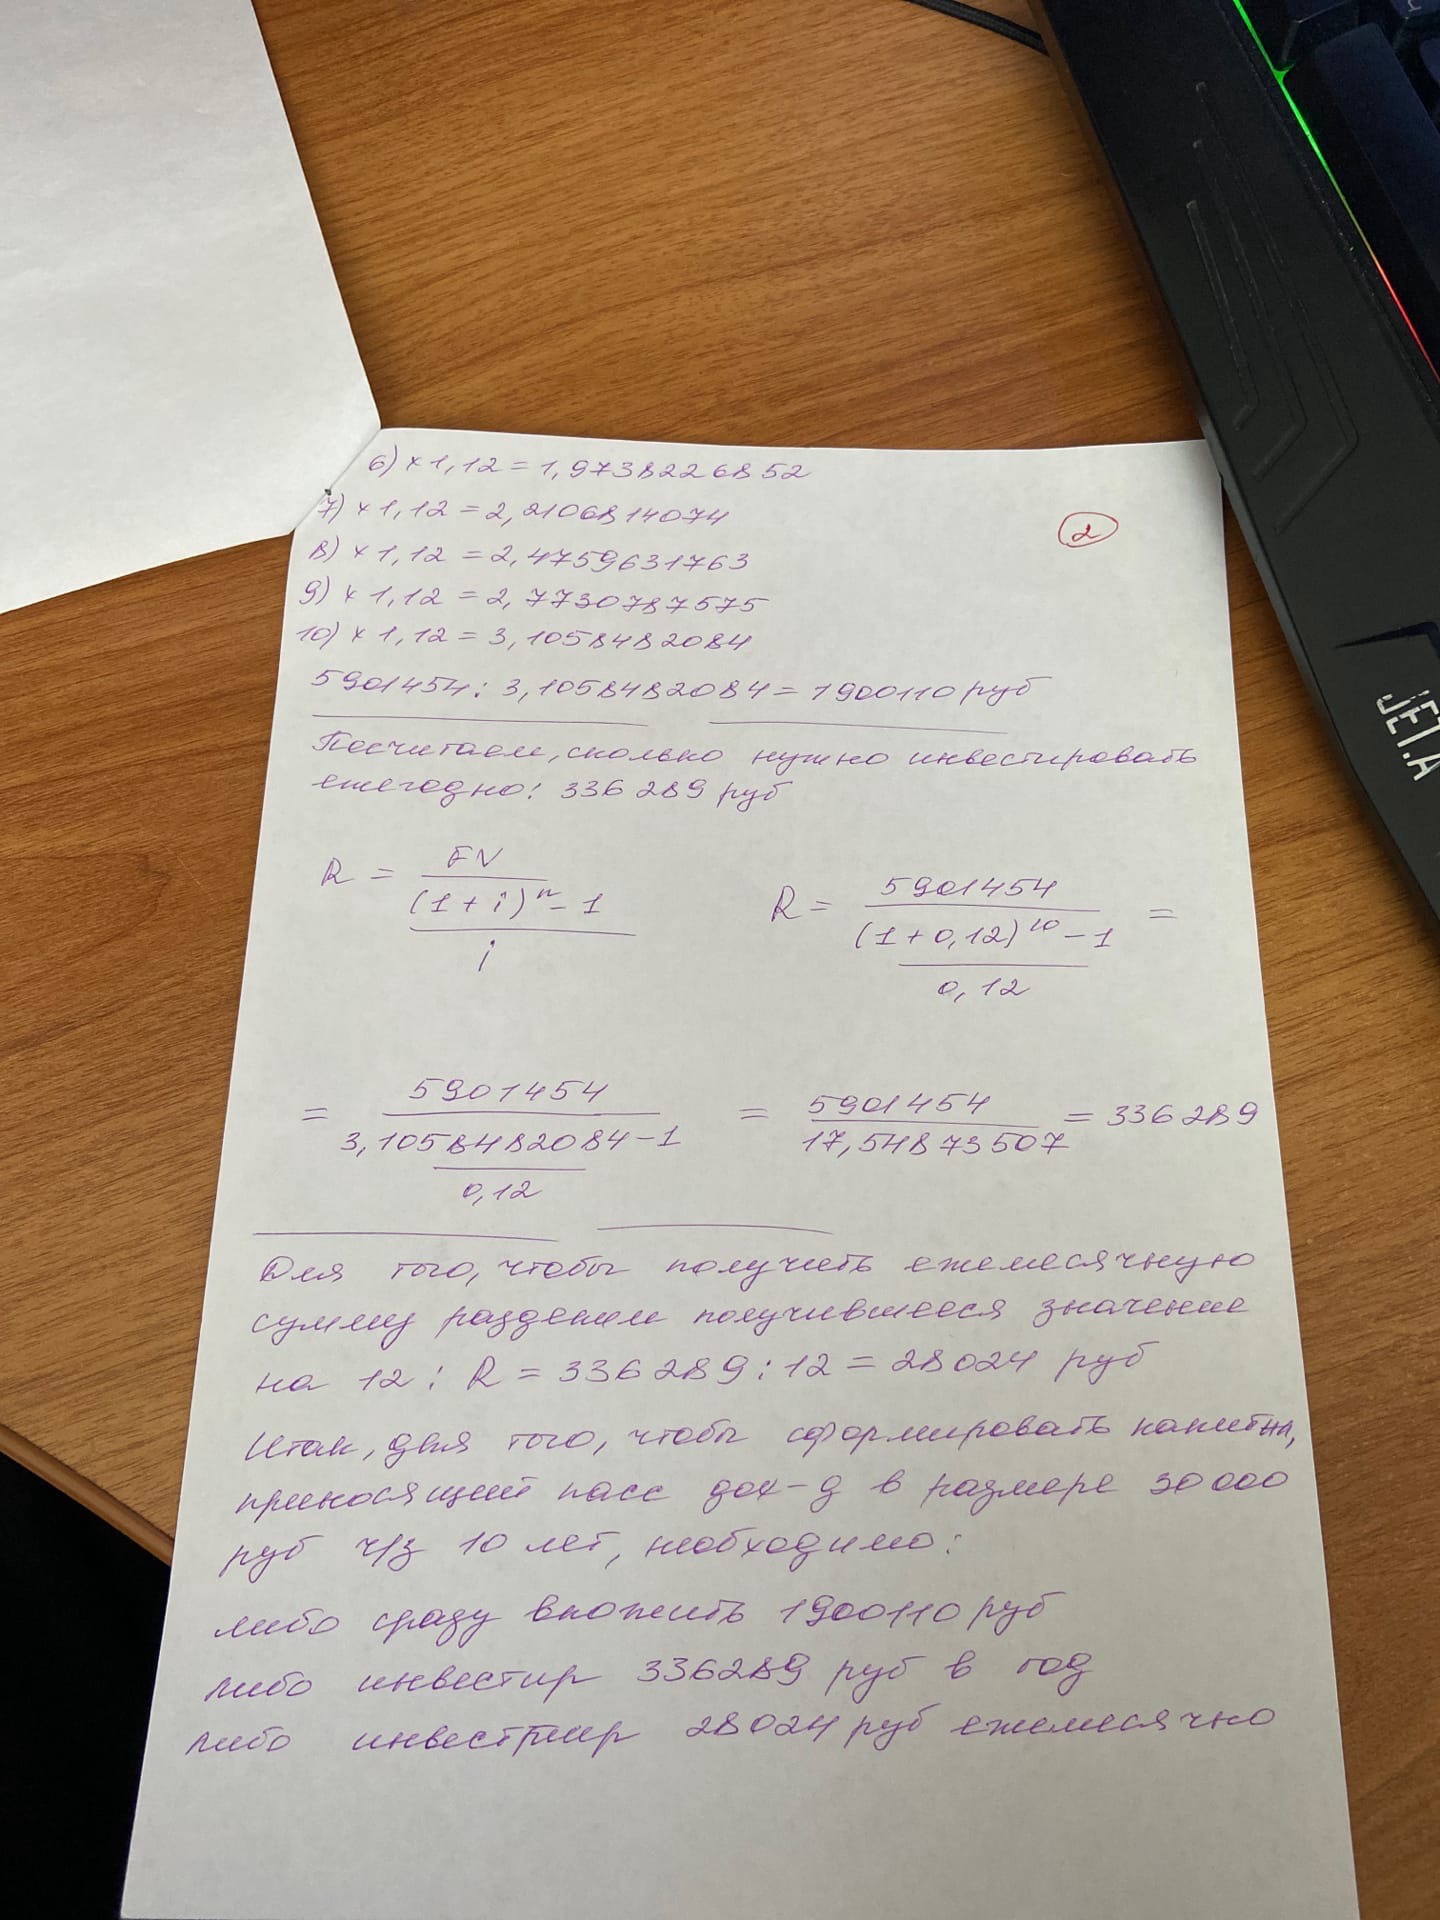 6) × 1,12 = 1,9738226852
7) × 1,12 = 2,2106814074
2
8) × 1,12 = 2,4759631763
9) × 1,12 = 2,7730787575
10) × 1,12 = 3,1058482084
5901454 : 3,1058482084 = 1900110 руб
Посчитаем, сколько нужно инвестировать
ежегодно: 336289 руб
R = FV / (((1 + i)^n - 1) / i)
R = 5901454 / (((1 + 0,12)^10 - 1) / 0,12) =
= 5901454 / ((3,1058482084 - 1) / 0,12) = 5901454 / 17,54873507 = 336289
Для того, чтобы получить ежемесячную
сумму разделим получившееся значение
на 12 : R = 336289 : 12 = 28024 руб
Итак, для того, чтобы сформировать капитал,
приносящий пасс дох-д в размере 30000
руб ч/з 10 лет, необходимо:
либо сразу вложить 1900110 руб
либо инвестир 336289 руб в год
либо инвестир 28024 руб ежемесячно
JET.A